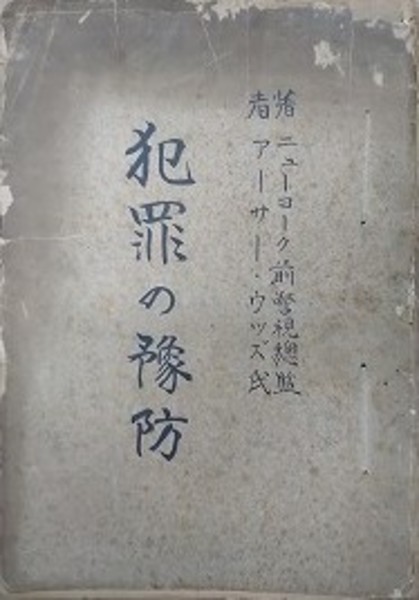 著者
ニューヨーク前警視總監
アーサー・ウッズ氏
犯罪の豫防